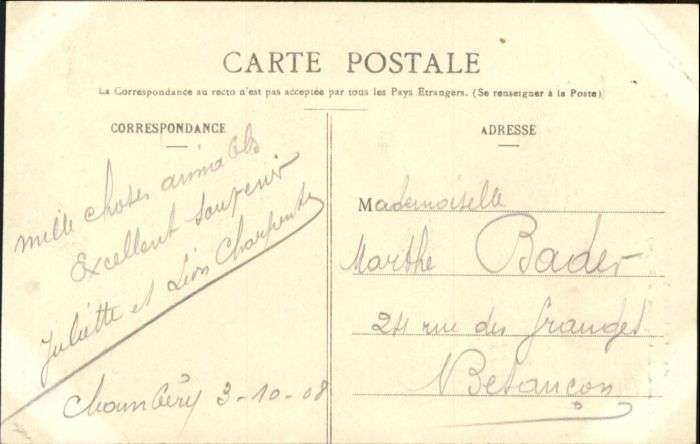 CARTE POSTALE
La Correspondance au recto n'est pas acceptée par tous les Pays Etrangers. (Se renseigner à la Poste)
CORRESPONDANCE
mille choses aimables
Excellent souvenir
Juliette et Léon Charpentier
Chambéry 3-10-08
ADRESSE
Mademoiselle
Marthe Bader
24 rue des Granges
Besançon